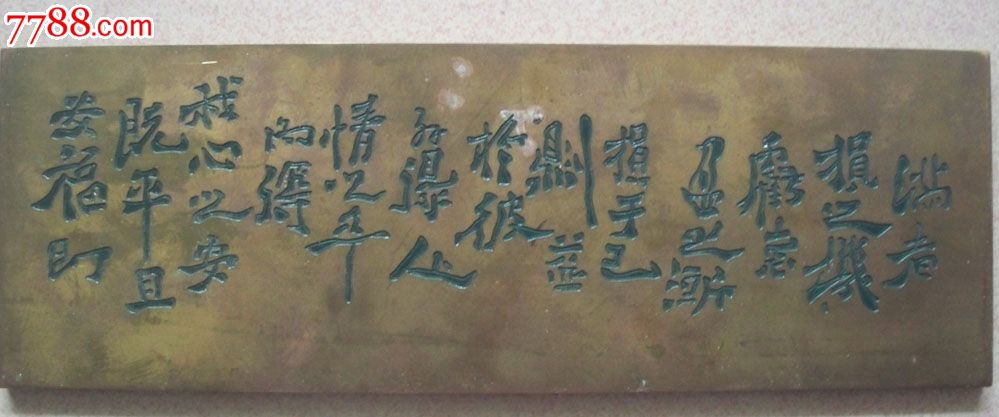 7788.com
滿者
損之機
虧者
盈之漸
損于己
則益
於彼
外得人
情之平
內得
我心之安
既平且
安福即